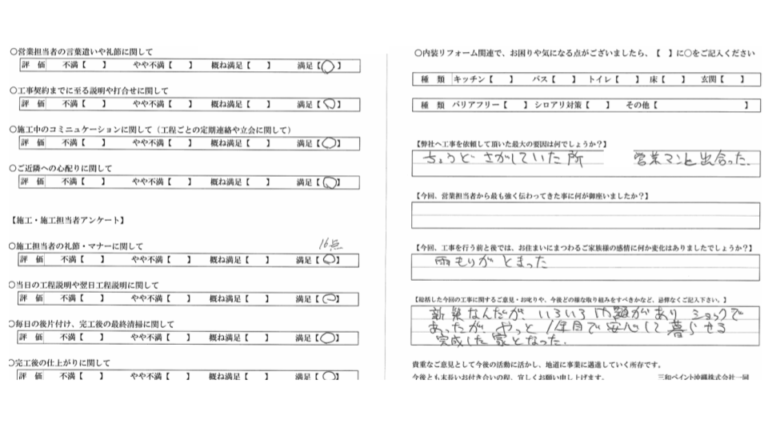 ○営業担当者の言葉遣いや礼節に関して
評 価 不満【 】 やや不満【 】 概ね満足【 】 満足【○】
○工事契約までに至る説明や打合せに関して
評 価 不満【 】 やや不満【 】 概ね満足【 】 満足【○】
○施工中のコミニュケーションに関して（工程ごとの定期連絡や立会に関して）
評 価 不満【 】 やや不満【 】 概ね満足【 】 満足【○】
○ご近隣への心配りに関して
評 価 不満【 】 やや不満【 】 概ね満足【 】 満足【○】
【施工・施工担当者アンケート】
○施工担当者の礼節・マナーに関して 16点
評 価 不満【 】 やや不満【 】 概ね満足【 】 満足【○】
○当日の工程説明や翌日工程説明に関して
評 価 不満【 】 やや不満【 】 概ね満足【 】 満足【○】
○毎日の後片付け、完工後の最終清掃に関して
評 価 不満【 】 やや不満【 】 概ね満足【 】 満足【○】
○完工後の仕上がりに関して
評 価 不満【 】 やや不満【 】 概ね満足【 】 満足【○】
○内装リフォーム関連で、お困りや気になる点がございましたら、【 】に○をご記入ください
種 類 キッチン【 】 バス【 】 トイレ【 】 床【 】 玄関【 】
種 類 バリアフリー【 】 シロアリ対策【 】 その他【 】
【弊社へ工事を依頼して頂いた最大の要因は何でしょうか？】
ちょうど さがしていた所 営業マンと出合った.
【今回、営業担当者から最も強く伝わってきた事に何が御座いましたか？】
【今回、工事を行う前と後では、お住まいにまつわるご家族様の感情に何か変化はありましたでしょうか？】
雨もりが とまった
【総括した今回の工事に関するご意見・お叱りや、今後どの様な取り組みをすべきかなど、忌憚なくご記入下さい。】
新築なんだが いろいろ問題があり ショックで
あったが やっと 1年目で安心して暮らせる
完成した家となった.
貴重なご意見として今後の活動に活かし、地道に事業に邁進していく所存です。
今後とも末長いお付き合いの程、宜しくお願い申し上げます。 三和ペイント沖縄株式会社一同